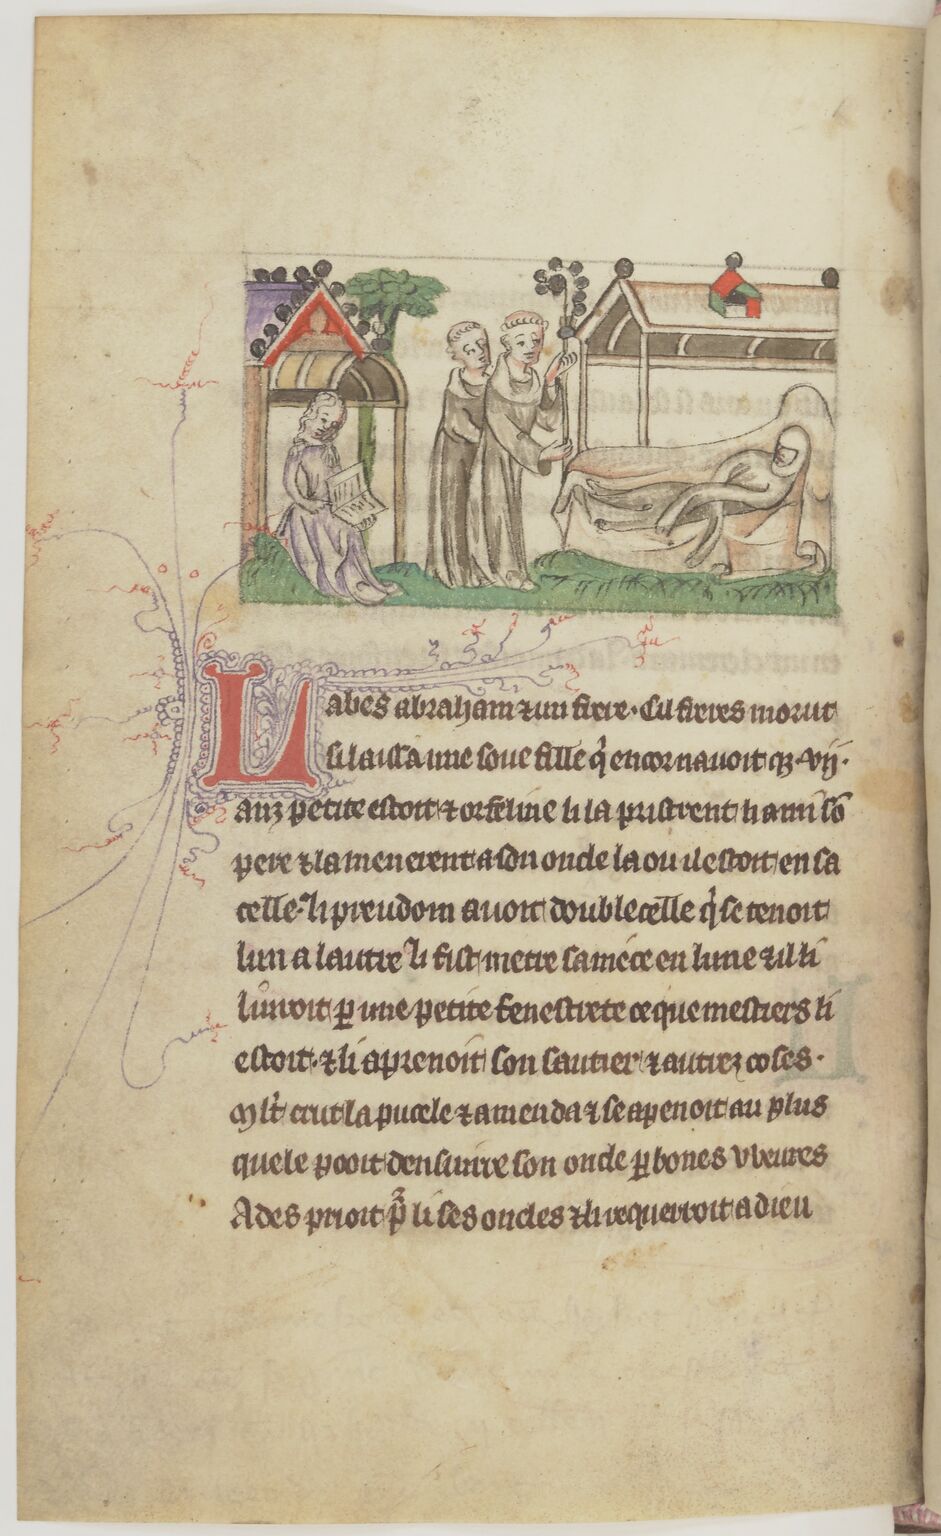 L abes abraham ⁊ un frere · Cil freres morut
si laissa une soue fille q̓ encor nauoit q̃ · vij ·
anz petite estoit ⁊ orfeline li la pristrent li ami sõ
pere ⁊ la menerent a son oncle la ou il estoit en sa
celle · li preudom auoit double celle q̓ se tenoit
lun a lautre li fist metre sa niece en lune ⁊ il li
liuroit ꝑ une petite fenestrete ce que mestiers li
estoit · ⁊ li aprenoit son sautier ⁊ autrez coses ·
Mlt̓ crut la pucele ⁊ amenda ⁊ se apenoit au plus
quele pooit densuire son oncle ꝑ bones vueures
Ades prioit p̃ li ses oncles ⁊ li requerroit a dieu